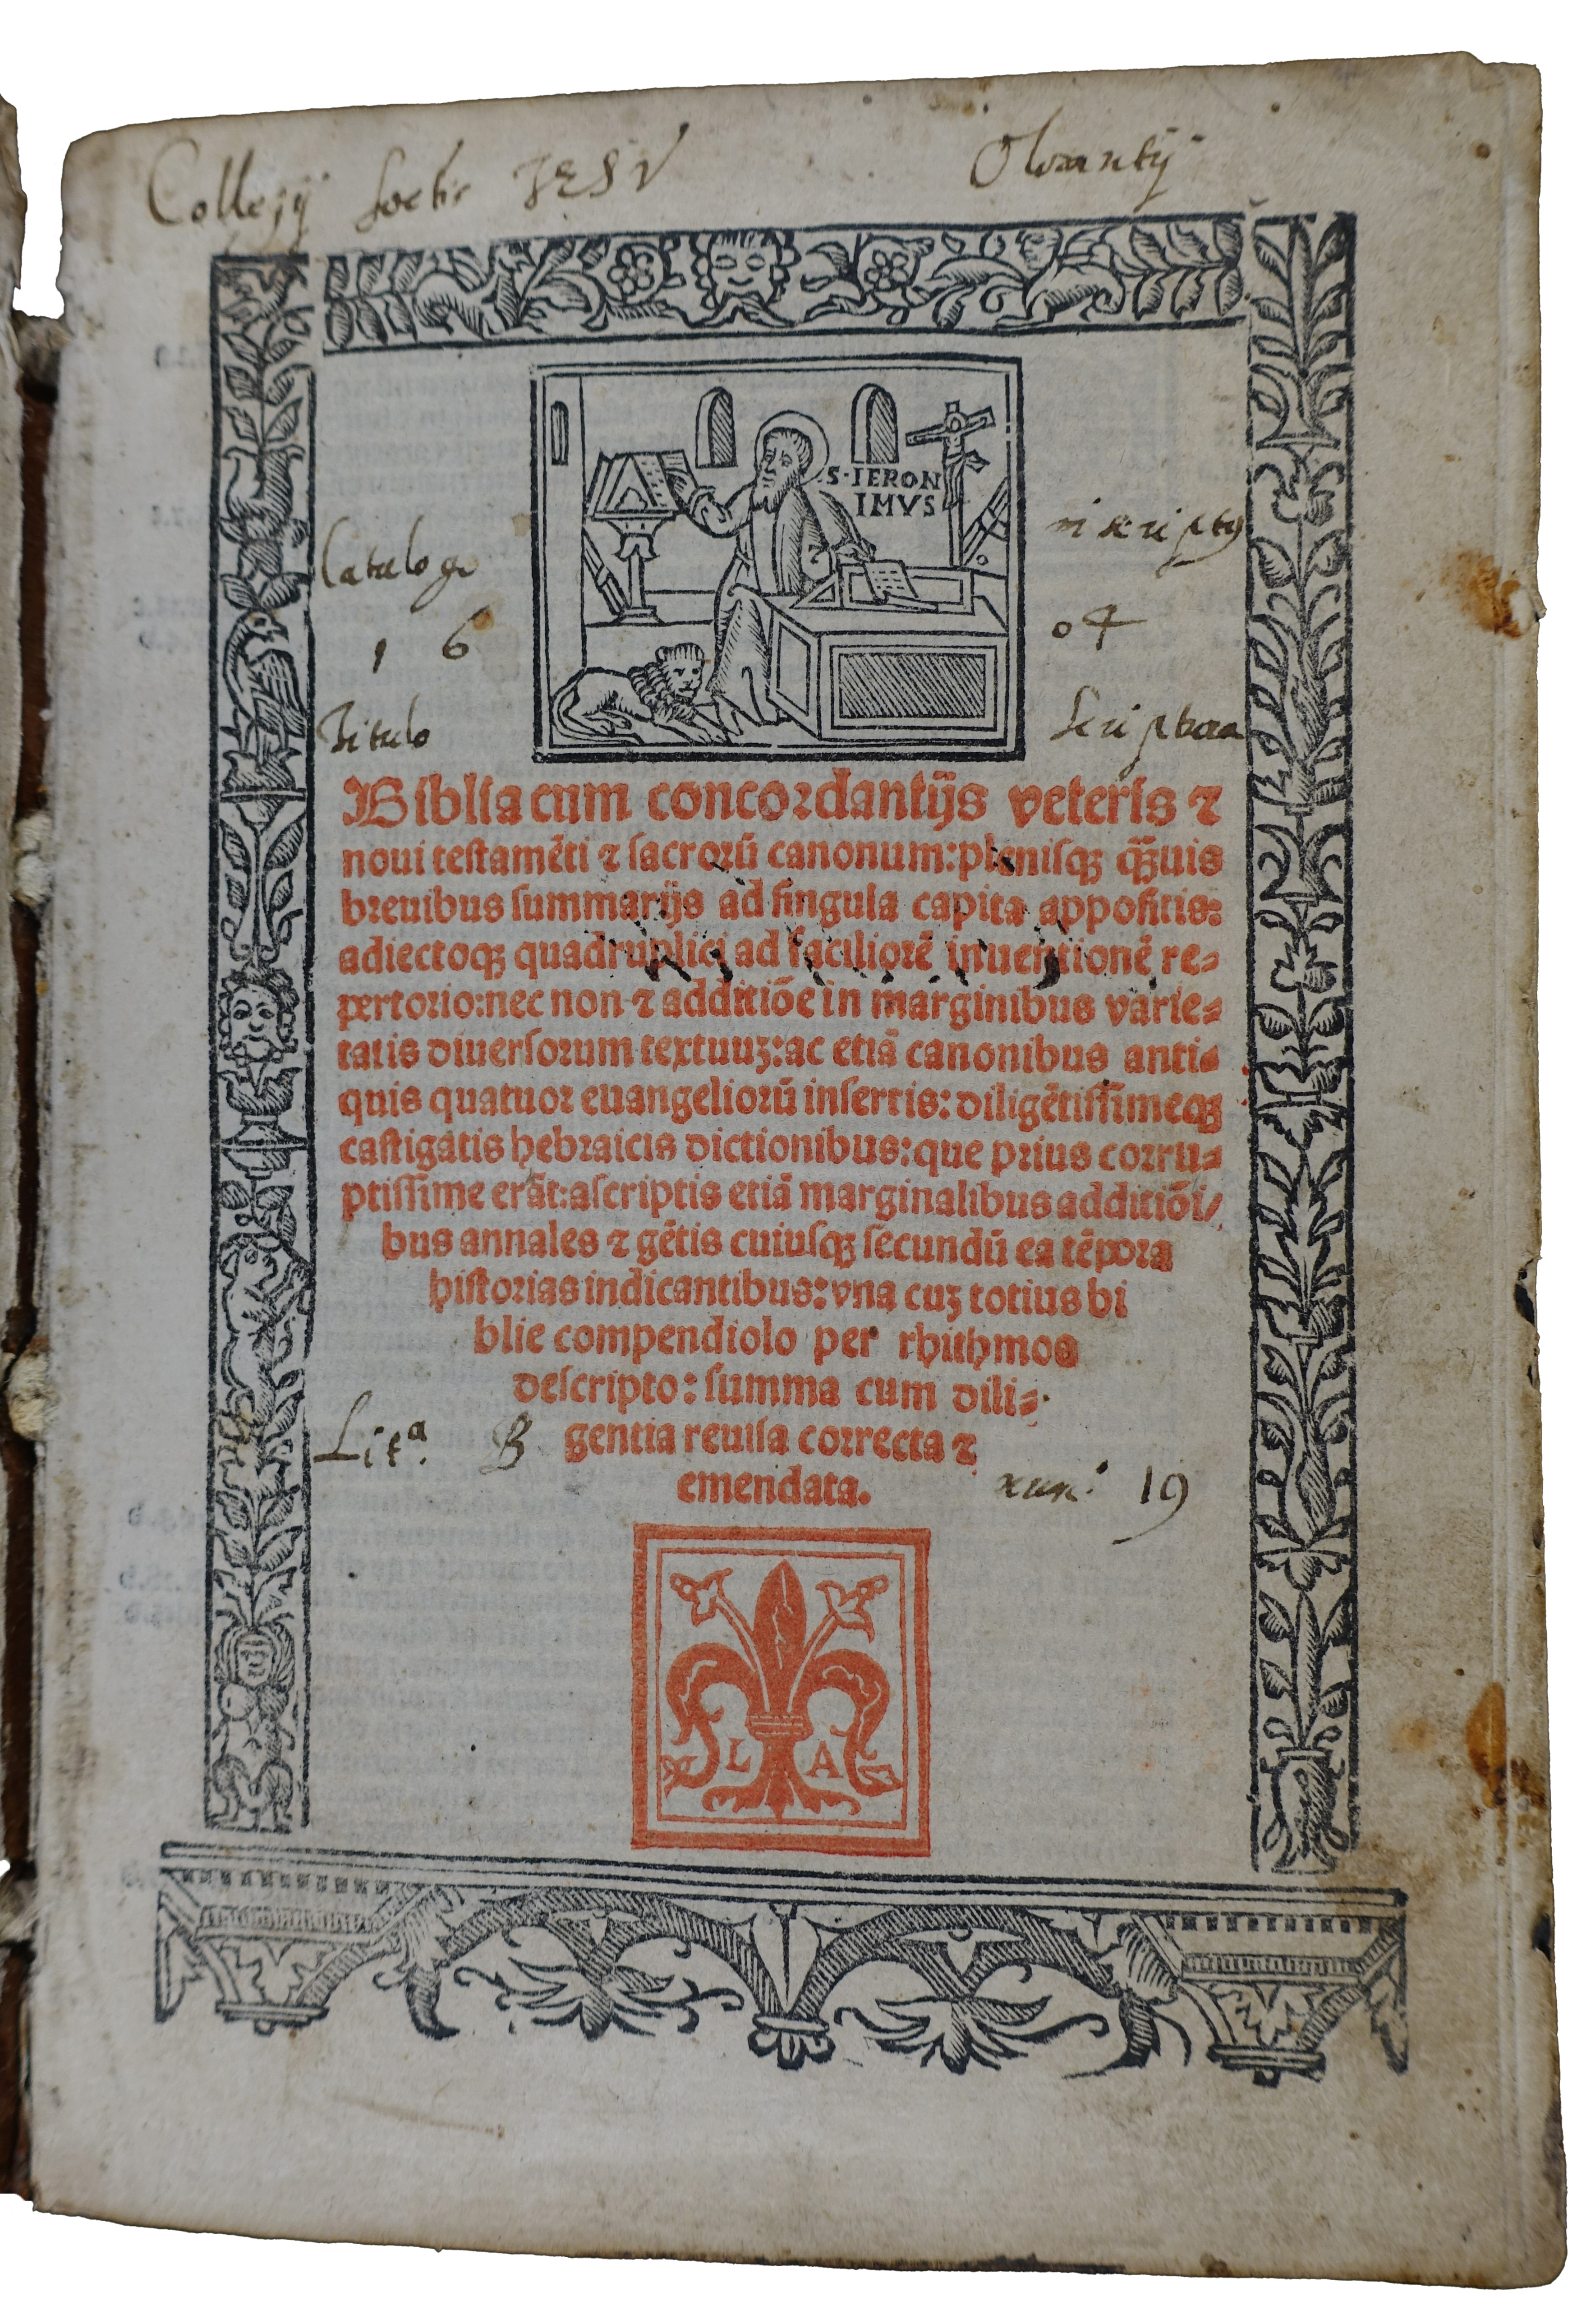 Collegij Soctis JESV Olomutij
S·IERON
IMVS
Catalogo inscriptus
1 6 04
Titulo Scriptura
Biblia cum concordantijs veteris ⁊
noui testamēti ⁊ sacrorū canonum: plenisqꝫ q̄ꝫuis
breuibus summarijs ad singula capita appositis:
adiectoqꝫ quadruplici ad faciliorē inuentionē re⸗
pertorio: nec non ⁊ additiōe in marginibus varie⸗
tatis diuersorum textuuꝫ: ac etiā canonibus anti⸗
quis quatuor euangeliorū insertis: diligētissimeqꝫ
castigatis hebraicis dictionibus: que prius corru⸗
ptissime erāt: ascriptis etiā marginalibus additiōi/
bus annales ⁊ gētis cuiusqꝫ secundū ea tēpora
historias indicantibus: vna cuꝫ totius bi
blie compendiolo per rhithmos
descripto: summa cum dili⸗
gentia reuisa correcta ⁊
Litᵃ. B
emendata.
num: 19
L A